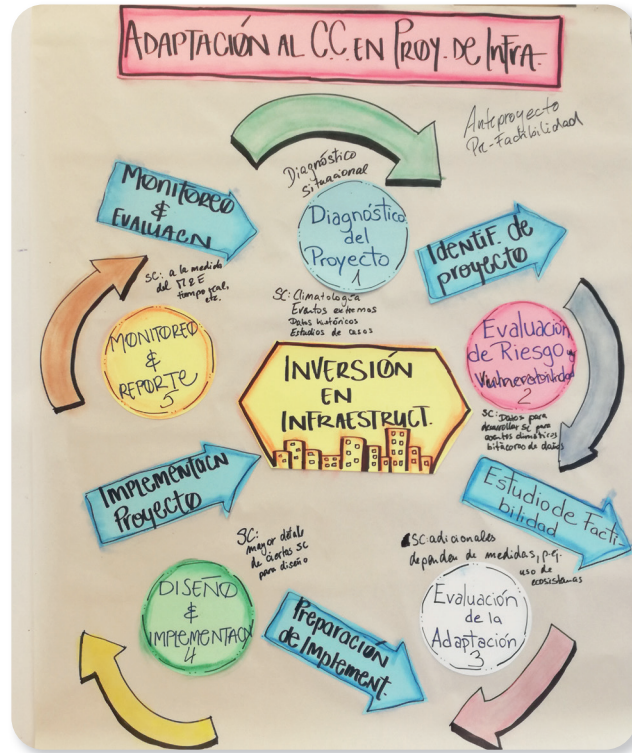 ADAPTACIÓN AL C.C. EN PROY. DE INFRA.
Anteproyecto
Pre-Factibilidad
Diagnóstico
situacional
MONITOREO
&
EVALUACN
Diagnóstico
del
Proyecto
1
Identif. de
proyecto
SC: a la medida
del M&E
tiempo real,
etc.
SC: Climatología
Eventos extremos
Datos históricos
Estudios de casos
MONITOREO
&
REPORTE
5
INVERSIÓN
EN
INFRAESTRUCT.
Evaluación
de Riesgo y
Vulnerabilidad
2
SC: Datos para
desarrollar SC para
eventos climáticos
bitácoras de daños
IMPLEMENTACN
PROYECTO
Estudio de Facti-
bilidad
SC:
mayor detalle
de ciertos SC
para diseño
SC adicionales
dependen de medidas, p.ej.
uso de
ecosistemas
DISEÑO
&
IMPLEMENTACN
4
Preparación
de Implement.
Evaluación
de la
Adaptación
3